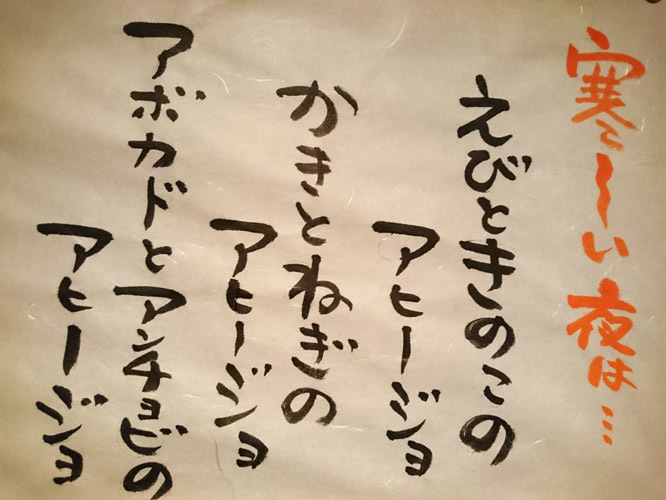 寒〜い夜は…
えびときのこの
アヒージョ
かきとねぎの
アヒージョ
アボカドとアンチョビの
アヒージョ